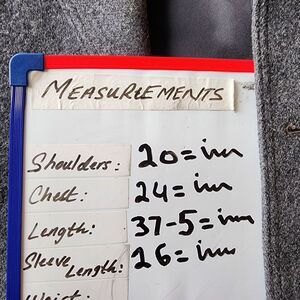 MEASUREMENTS
Shoulders: 20=inn
Chest: 24=inn
Length: 37-5=inn
Sleeve Length: 26=inn
Waist: